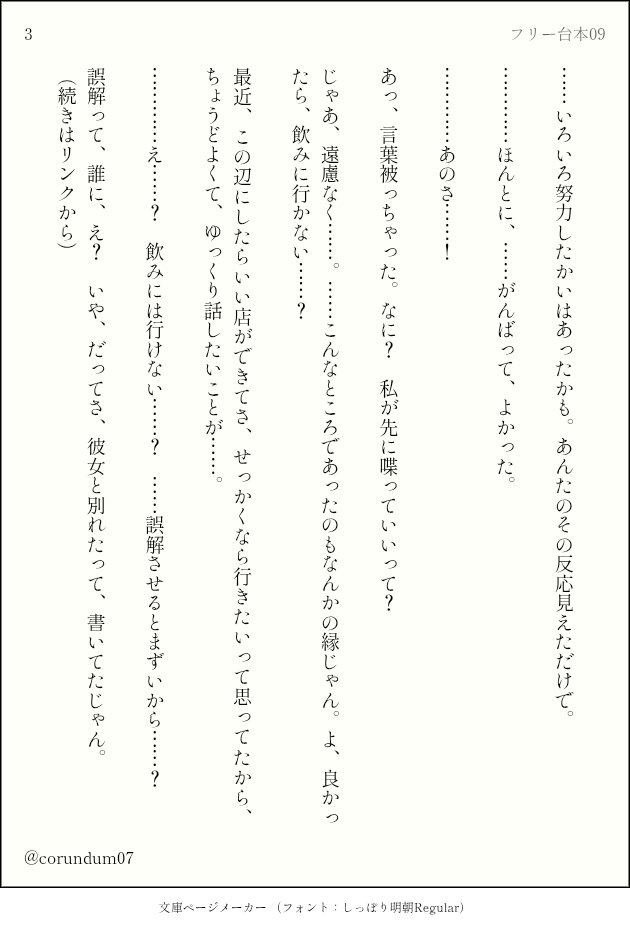 3
フリー台本09
……いろいろ努力したかいはあったかも。あんたのその反応見えただけで。
…………ほんとに、……がんばって、よかった。
…………あのさ……！
あっ、言葉被っちゃった。なに？　私が先に喋っていいって？
じゃあ、遠慮なく……。……こんなところであったのもなんかの縁じゃん。よ、良かっ
たら、飲みに行かない……？
最近、この辺にしたらいい店ができてさ、せっかくなら行きたいって思ってたから、
ちょうどよくて、ゆっくり話したいことが……。
…………え……？　飲みには行けない……？　……誤解させるとまずいから……？
誤解って、誰に、え？　いや、だってさ、彼女と別れたって、書いてたじゃん。
（続きはリンクから）
@corundum07
文庫ページメーカー （フォント：しっぽり明朝Regular）